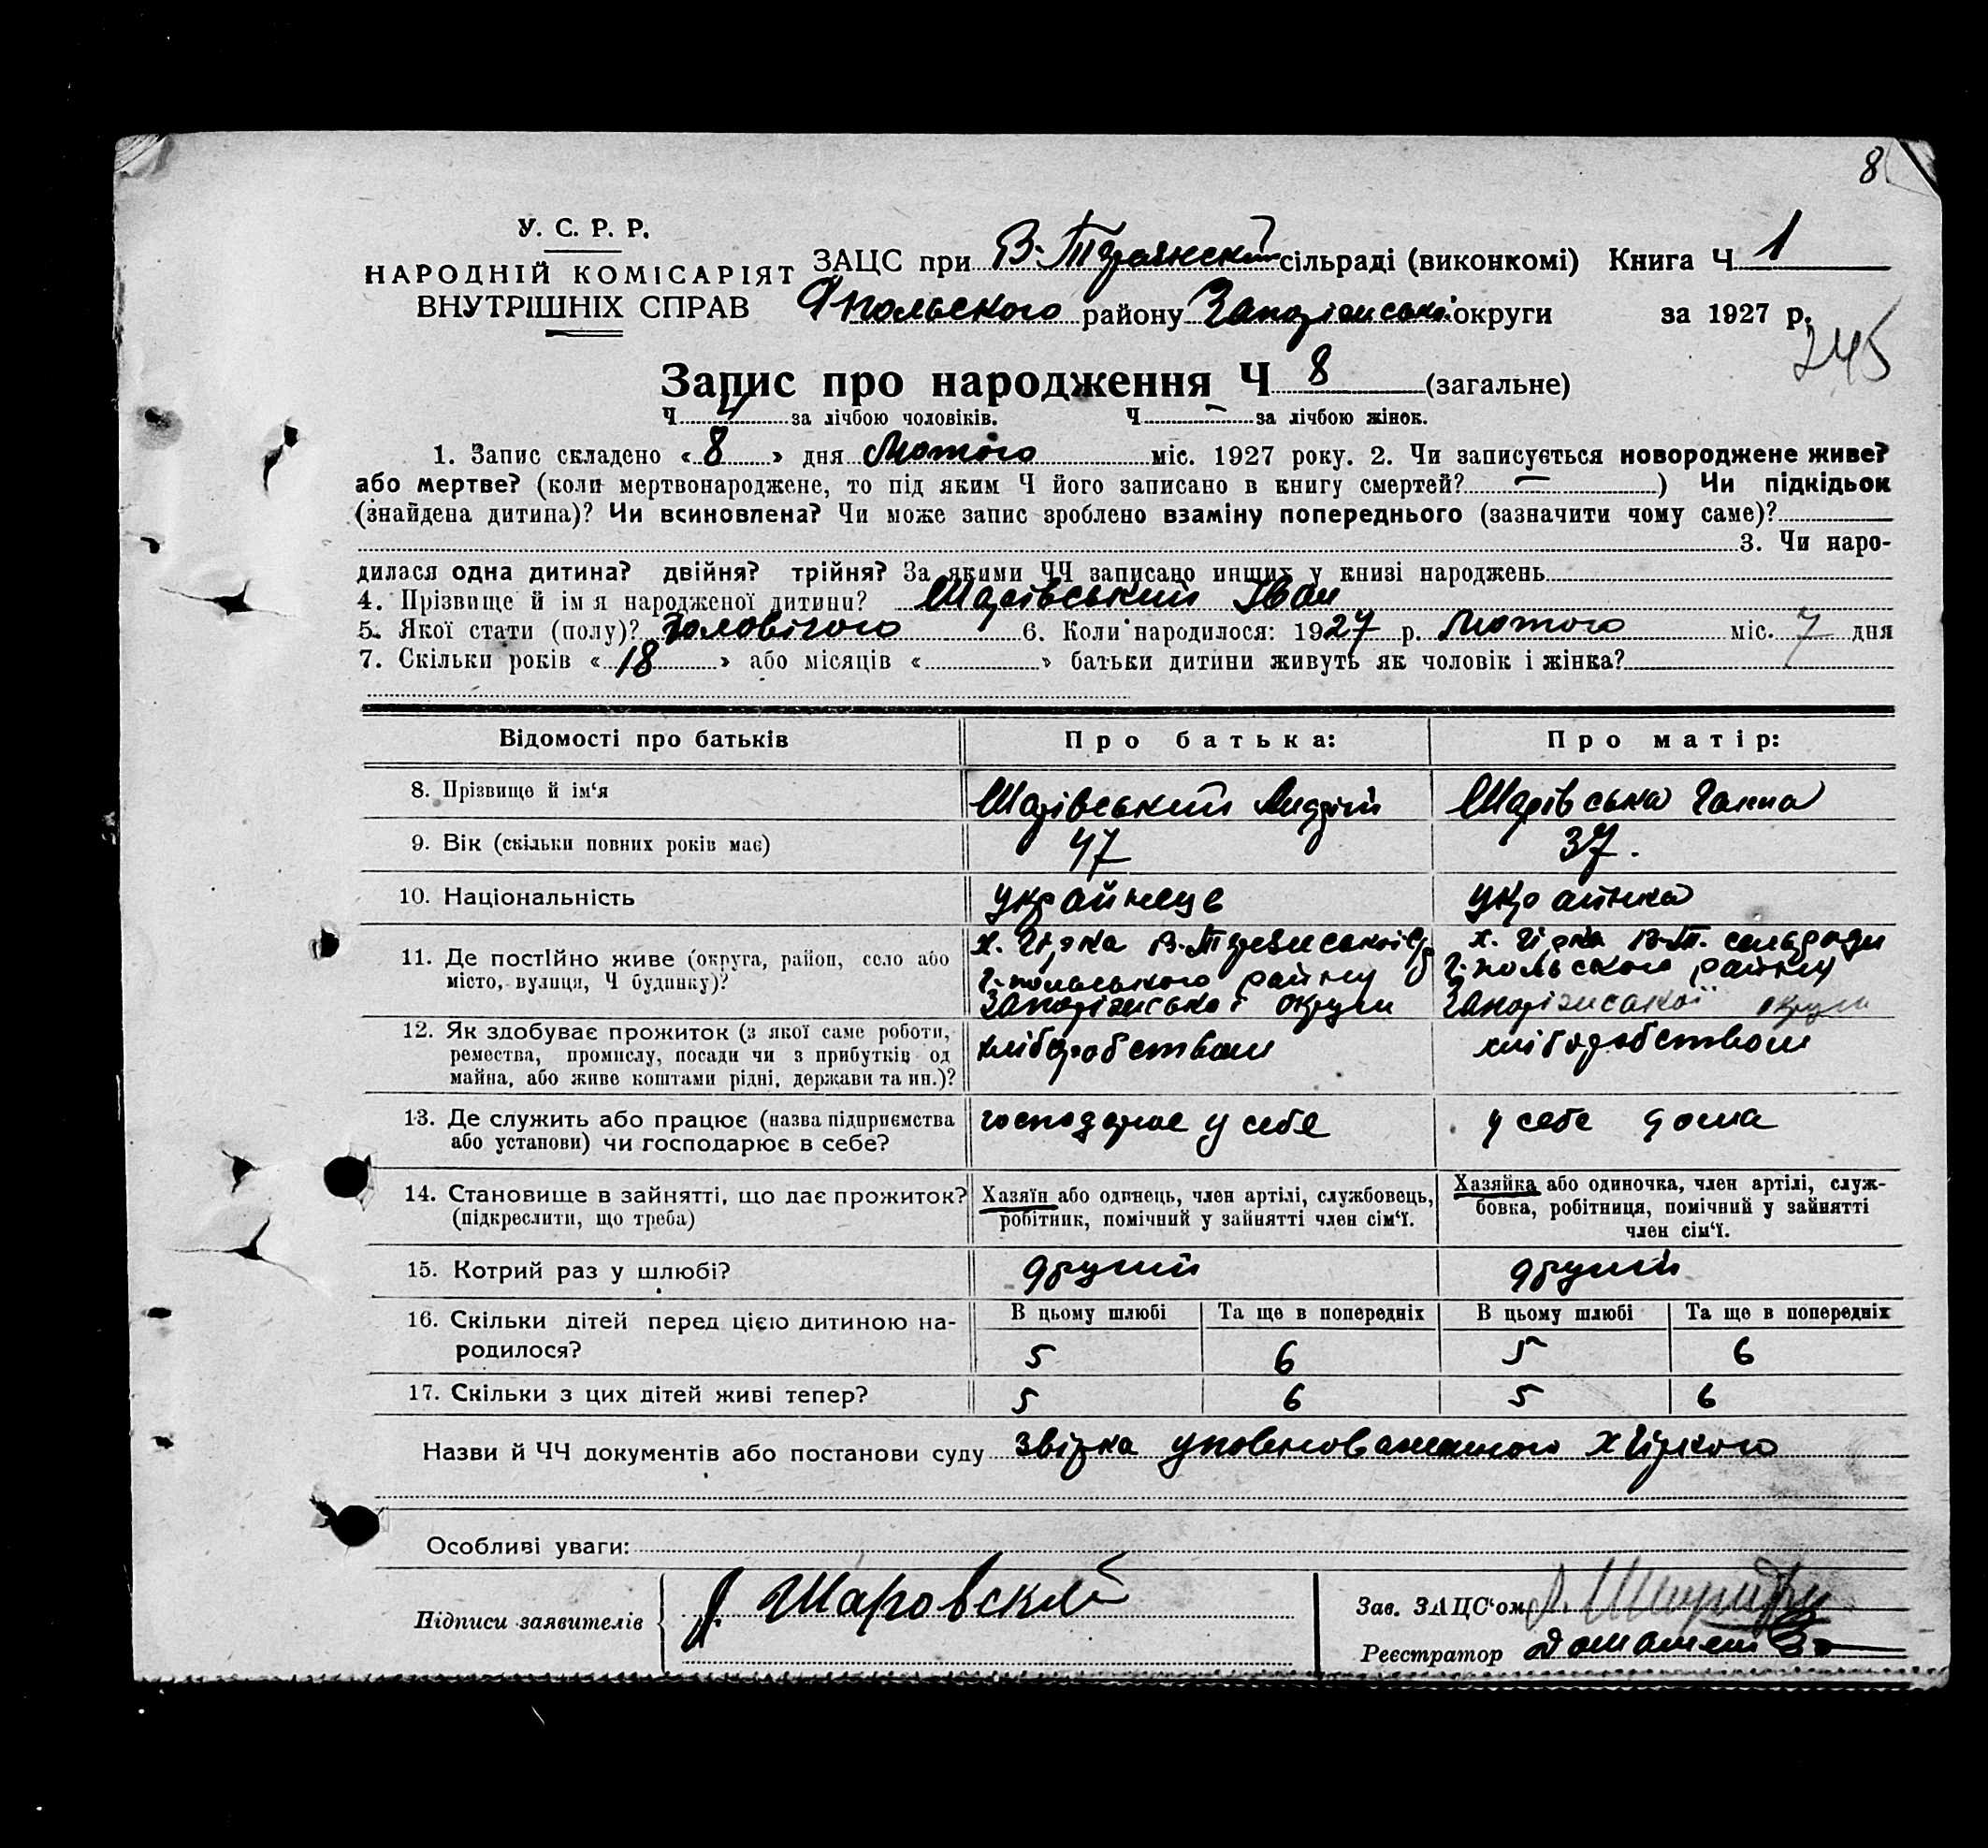 8
У. С. Р. Р.
НАРОДНІЙ КОМІСАРІЯТ
ВНУТРІШНІХ СПРАВ
ЗАЦС при сільраді (виконкомі) Книга Ч 1
району округи за 1927 р.
245
Запис про народження Ч 8 (загальне)
Ч 4 за лічбою чоловіків. Ч – за лічбою жінок.
1. Запис складено « 8 » дня Лютого міс. 1927 року. 2. Чи записується новороджене живе?
або мертве? (коли мертвонароджене, то під яким Ч його записано в книгу смертей? – ) Чи підкідьок
(знайдена дитина)? Чи всиновлена? Чи може запис зроблено взаміну попереднього (зазначити чому саме)?
3. Чи наро-
дилася одна дитина? двійня? трійня? За якими ЧЧ записано инших у книзі народжень
4. Прізвище й ім я народженої дитини? Шарівський Іван
5. Якої стати (полу)? Чоловічого 6. Коли народилося: 1927 р. Лютого міс. 7 дня
7. Скільки років « 18 » або місяців « » батьки дитини живуть як чоловік і жінка?
Відомості про батьків Про батька: Про матір:
8. Прізвище й ім‘я Шарівський Андрій Шарівська Ганна
9. Вік (скільки повних років має) 47 37.
10. Національність українець українка
11. Де постійно живе (округа, район, село або
місто, вулиця, Ч будинку)?
х. Гірка
района
Запорізської округи
х. Гірка В.-Т. сельради
района
Запорізської округи
12. Як здобуває прожиток (з якої саме роботи,
ремества, промислу, посади чи з прибутків од
майна, або живе коштами рідні, держави та ин.)?
хліборобством хліборобством
13. Де служить або працює (назва підприємства
або установи) чи господарює в себе?
господарює у себе у себе дома
14. Становище в зайнятті, що дає прожиток?
(підкреслити, що треба)
Хазяїн або одинець, член артілі, службовець,
робітник, помічний у зайнятті член сім‘ї.
Хазяйка або одиночка, член артілі, служ-
бовка, робітниця, помічний у зайнятті
член сім‘ї.
15. Котрий раз у шлюбі? другий другий
16. Скільки дітей перед цією дитиною на-
родилося?
В цьому шлюбі Та ще в попередніх В цьому шлюбі Та ще в попередніх
5 6 5 6
17. Скільки з цих дітей живі тепер? 5 6 5 6
Назви й ЧЧ документів або постанови суду
Особливі уваги:
Підписи заявителів Шаровский
Зав. ЗАЦС‘ом
Реєстратор